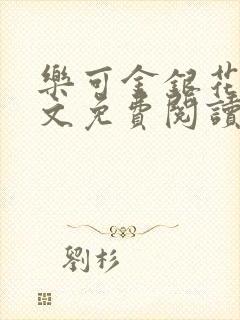 樂可金銀花
文免費閱讀
劉杉